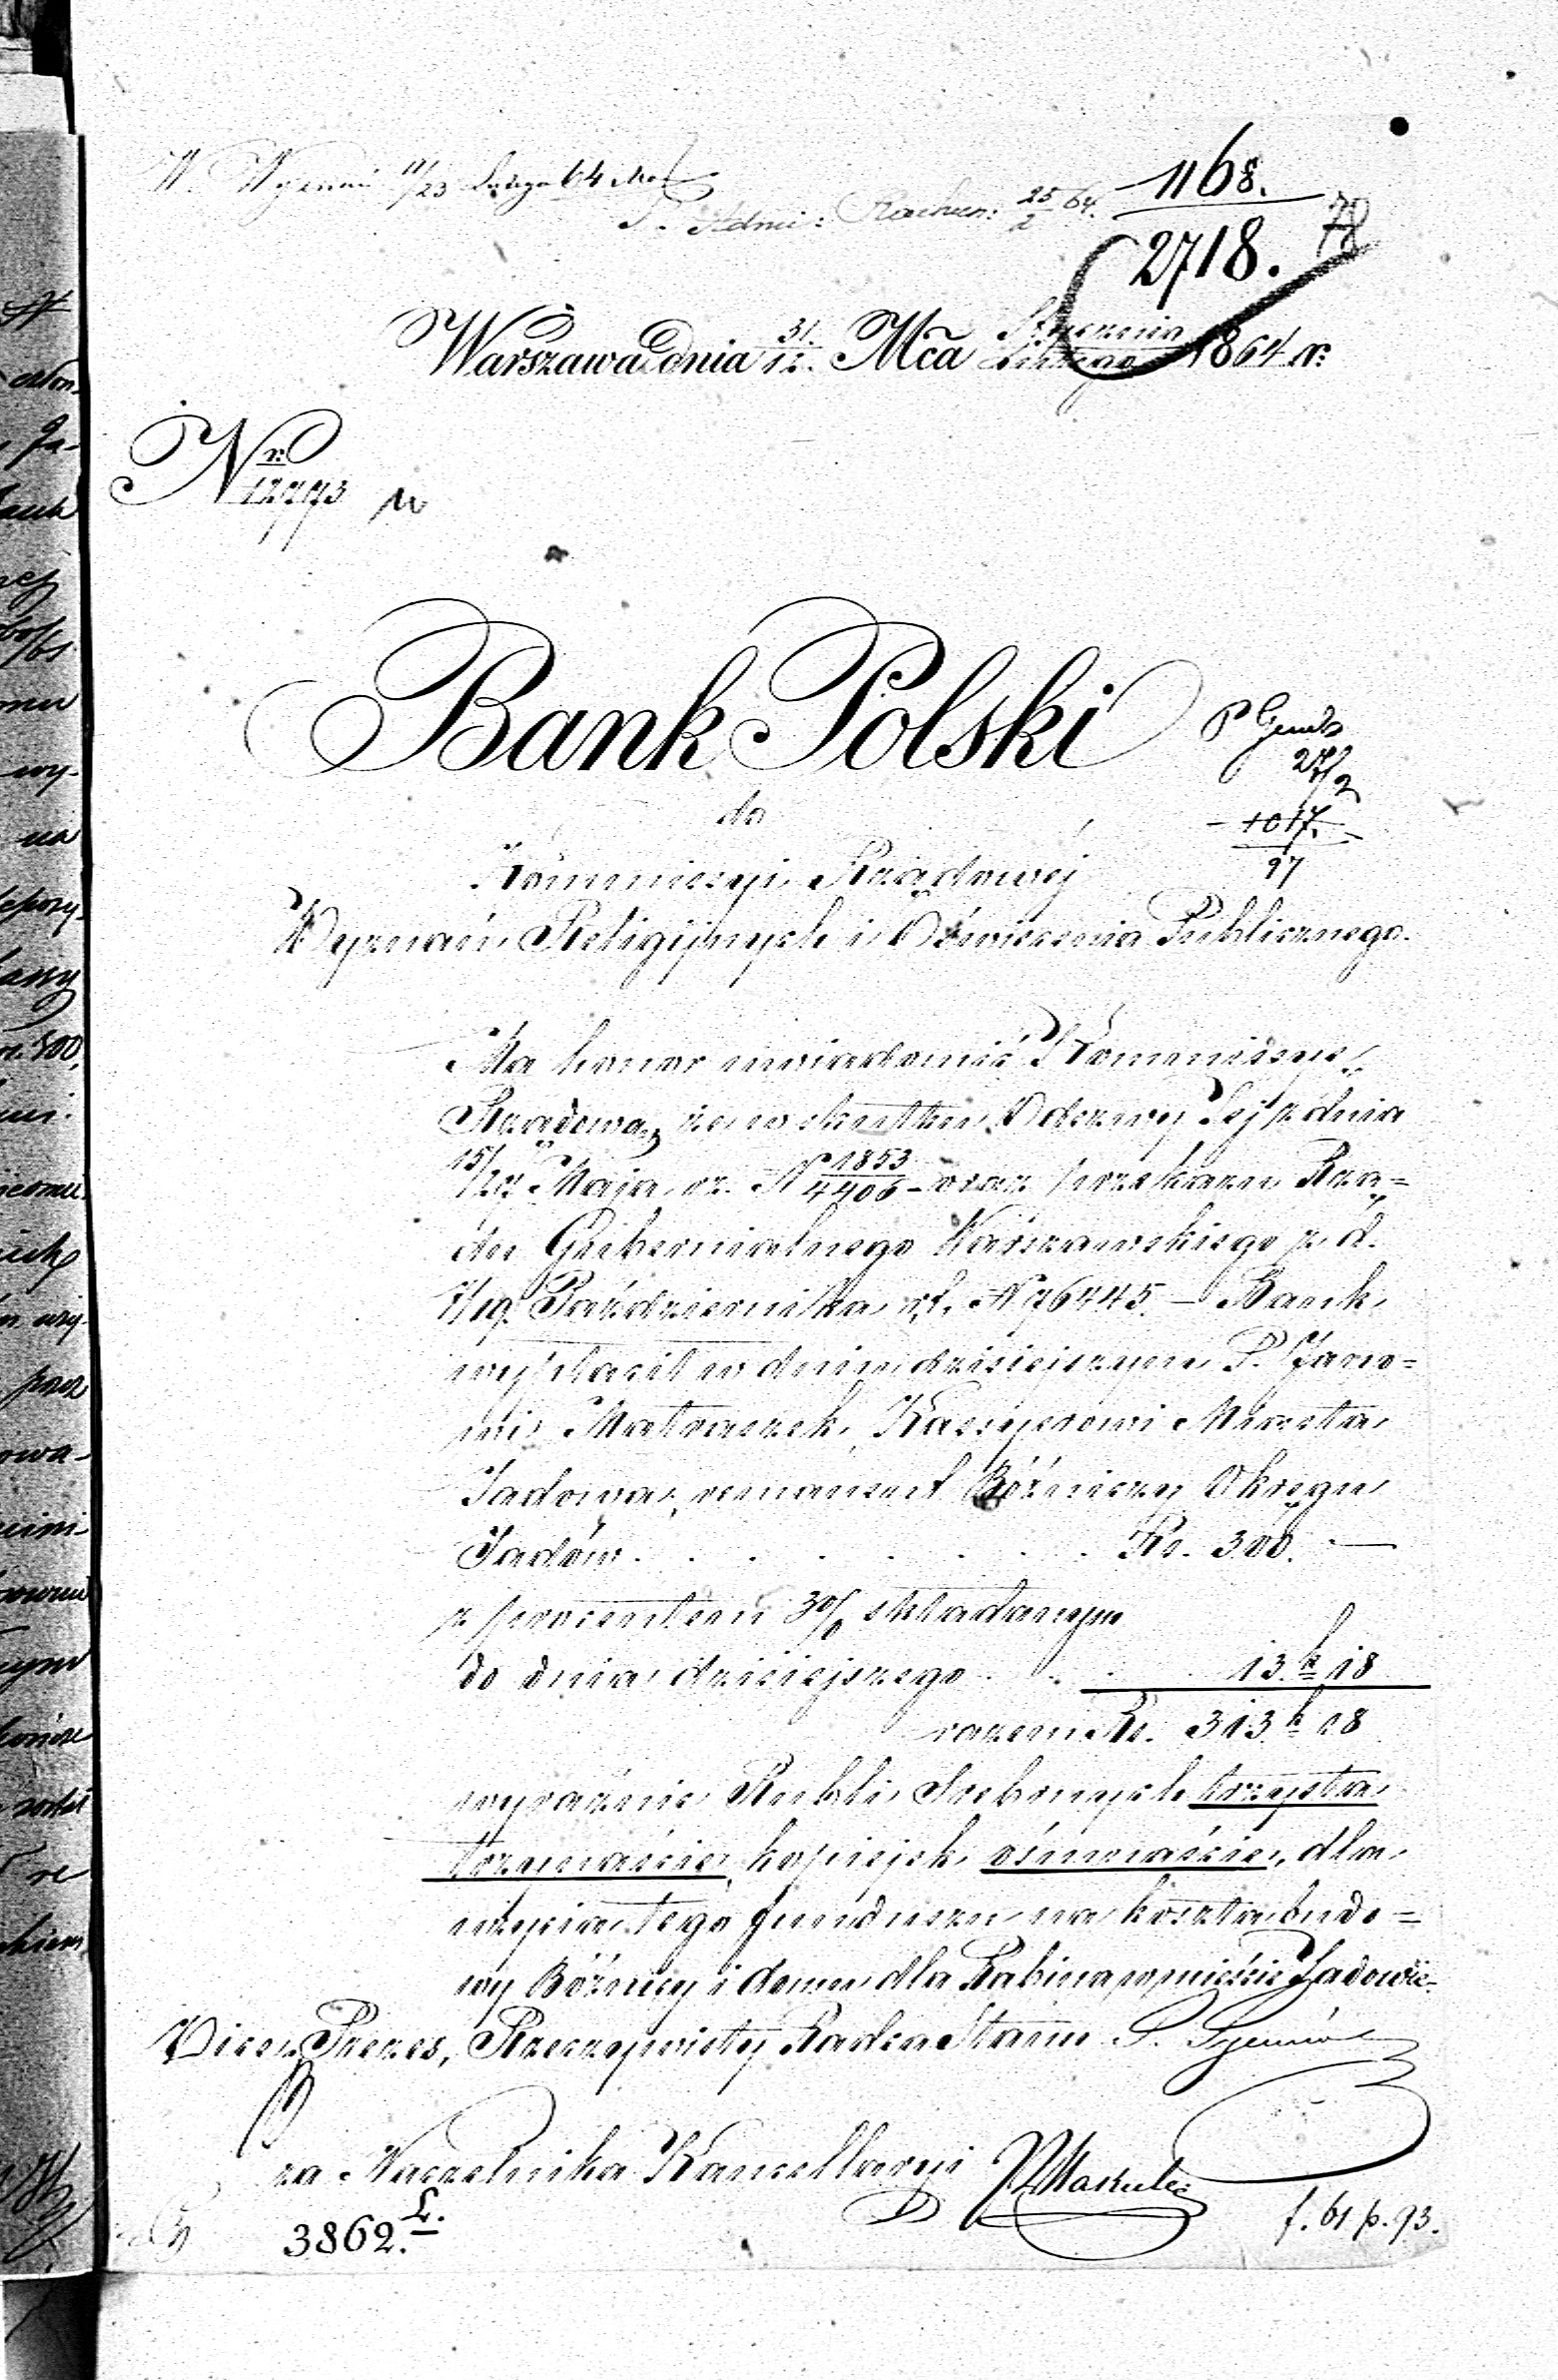 W. Wyznań 11/23 Lutego 64
Rachun: 25/2 64.
1168.
2718.
78
Warszawa dnia 31/12. Mca Stycznia/Lutego 1864 r.
Nr 12773
Bank Polski
27/2
1017.
97
do
Kommissyi Rządowéj
Wyznań Religijnych i Oświecenia Publicznego.
Ma honor uwiadomić Kommissyę
Rządową, że w skutku Odezwy Jej z dnia
15/27 Maja r. z. N 1853/4406 – oraz przekazu Rzą=
du Gubernialnego Warszawskiego z d.
7/19 Października r. z. N 76445. – Bank
wypłacił w dniu dzisiejszym P.
Kassyerowi Miasta
Jadowa, remanent Bóżniczy Okręgu
Jadów. . . . . . . . . Rs. 300. —
z procentem 3% składanym
do dnia dzisiejszego . . . 13 k 18
razem Rs. 313 k 18
wyraźnie Rubli Srebrnych trzysta
trzynaście, kopiejek ośmnaście, dla
użycia tego funduszu na koszta budo=
wy Bóżnicy i domu dla Rabina w mieście Jadowie.
Vice-Prezes, Rzeczywisty Radca Stanu
za Naczelnika Kancellaryi
3862. L.
f. 61 p. 93.